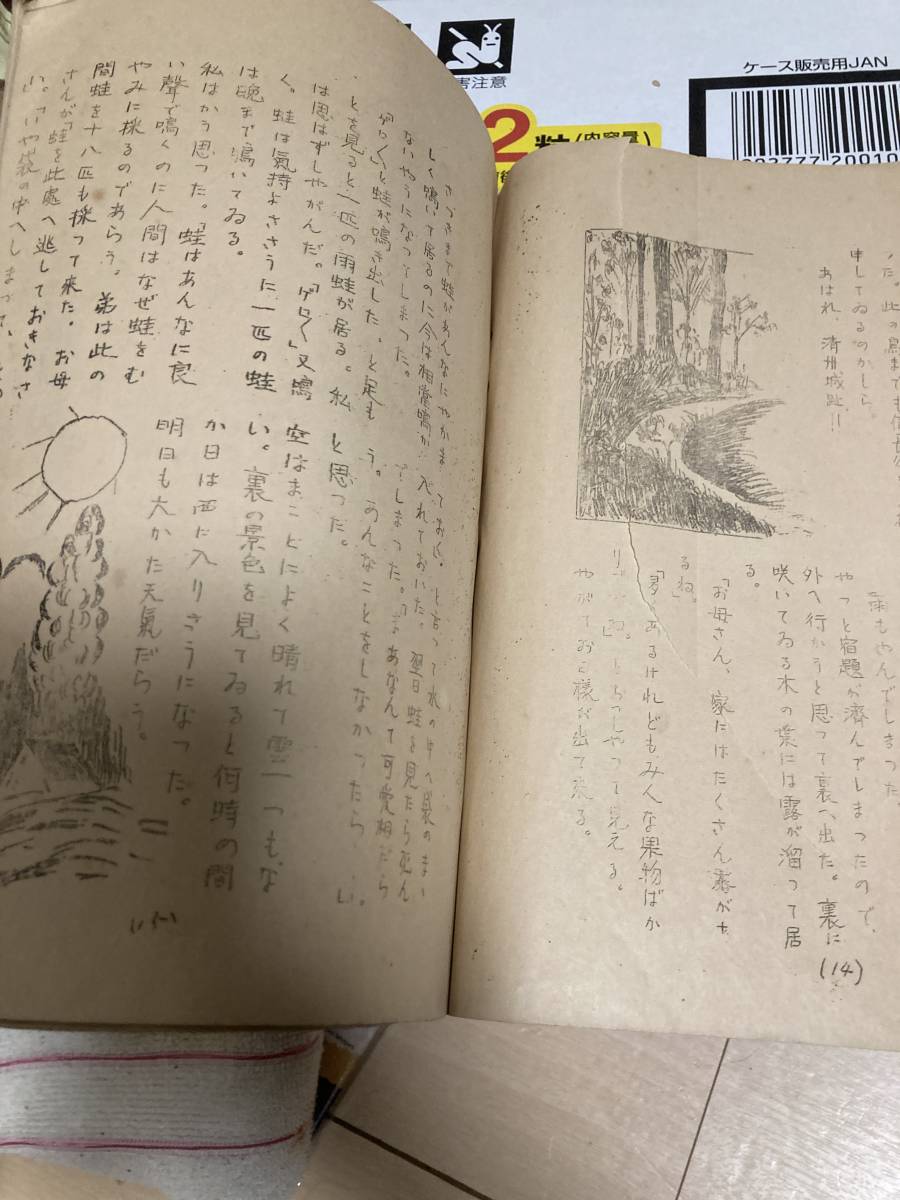 害注意
ケース販売用JAN
2粒(内容量)
た。此の鳥までも信長
申してゐるのかしら。
あはれ、清州城趾!!
雨もやんでしまつた。
やつと宿題が済んでしまつたので、
外へ行かうと思つて裏へ出た。裏に
咲いてゐる木の葉には露が溜つて居
る。
「お母さん、家にはたくさん
るね。」
あるけれどもみんな果物ばか
り ね。」とおつしやつて見える。
やがてお こ様が出て来る。
(14)
さつきまで蛙があんなにやかま
しく鳴いて居るのに今は相當鳴か
ないやうになつてしまつた。
「ゲロ〱」と蛙が鳴き出した。と足も
とを見ると一匹の雨蛙が居る。私
は思はずしやがんだ。「ゲロ〱」又鳴
く。蛙は氣持よささうに一匹の蛙
は晩まで鳴いてゐる。
私はかう思つた。「蛙はあんなに良
い聲で鳴くのに人間はなぜ蛙をむ
やみに採るのであらう。弟は此の
間蛙を十八匹も採つて来た。お母
さんが「蛙を此處へ逃しておきなさ
い。」いや袋の中へしまつて
ておく。と言つて水の中へ袋のまゝ
入れておいた。翌日蛙を見たら死ん
でしまつた。「まあなんて可愛相だら
う。あんなことをしなかつたらいゝ
と思つた。
空はまことによく晴れて雲一つもな
い。裏の景色を見てゐると何時の間
か日は西に入りさうになつた。
明日も大かた天氣だらう。